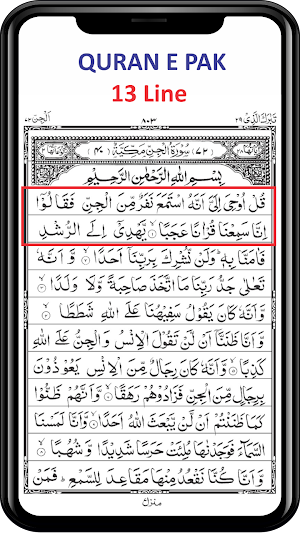 QURAN E PAK
13 Line
تَبٰرَكَ الَّذِیْ ۲۹
۸۰۳
اَلْجِنّ ۷۲
سُوْرَةُ الْجِنِّ مَكِّيَّةٌ
بِسْمِ اللّٰهِ الرَّحْمٰنِ الرَّحِيْمِ
قُلْ اُوْحِيَ اِلَيَّ اَنَّهُ اسْتَمَعَ نَفَرٌ مِّنَ الْجِنِّ فَقَالُوْٓا
اِنَّا سَمِعْنَا قُرْاٰنًا عَجَبًا ۙ يَّهْدِيْٓ اِلَى الرُّشْدِ
فَاٰمَنَّا بِهٖ ؕ وَلَنْ نُّشْرِكَ بِرَبِّنَآ اَحَدًا ۙ وَّاَنَّهٗ
تَعٰلٰى جَدُّ رَبِّنَا مَا اتَّخَذَ صَاحِبَةً وَّلَا وَلَدًا ۙ
وَّاَنَّهٗ كَانَ يَقُوْلُ سَفِيْهُنَا عَلَى اللّٰهِ شَطَطًا ۙ
وَّاَنَّا ظَنَنَّآ اَنْ لَّنْ تَقُوْلَ الْاِنْسُ وَالْجِنُّ عَلَى اللّٰهِ
كَذِبًا ۙ وَّاَنَّهٗ كَانَ رِجَالٌ مِّنَ الْاِنْسِ يَعُوْذُوْنَ
بِرِجَالٍ مِّنَ الْجِنِّ فَزَادُوْهُمْ رَهَقًا ۙ وَّاَنَّهُمْ ظَنُّوْا
كَمَا ظَنَنْتُمْ اَنْ لَّنْ يَّبْعَثَ اللّٰهُ اَحَدًا ۙ وَّاَنَّا لَمَسْنَا
السَّمَآءَ فَوَجَدْنٰهَا مُلِئَتْ حَرَسًا شَدِيْدًا وَّشُهُبًا ۙ
وَّاَنَّا كُنَّا نَقْعُدُ مِنْهَا مَقَاعِدَ لِلسَّمْعِ ؕ فَمَنْ
منزل